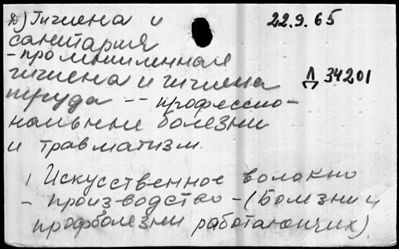 А) Гигиена и
санитария
22.9.65
- промышленная
гигиена и гигиена
Д 34201
труда -- профессио-
нальные болезни
и травматизм.
1 Искусственное волокно
- производство - (Болезни и
профболезни работающих).